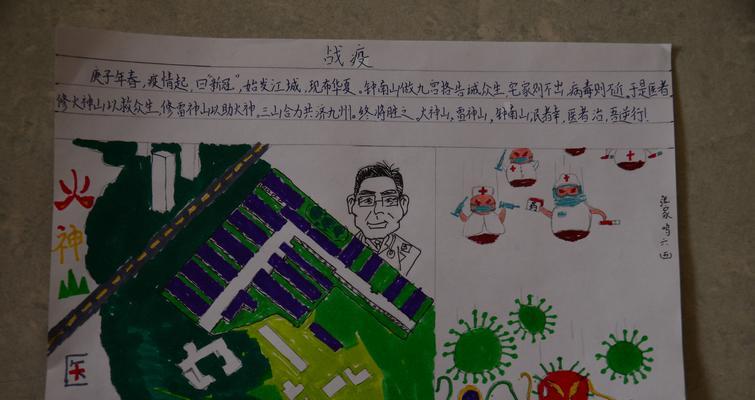 战疫
庚子年春,疫情起,曰"新冠",始发江城,现布华夏。钟南山做九宫格告诫众生,宅家则不出,病毒则不近,于是医者
修火神山以救众生,修雷神山以助火神,三山合力共济九州。终将胜之。火神山,雷神山,钟南山,医者治,吾逆行!
火
神
山
医
六(四)